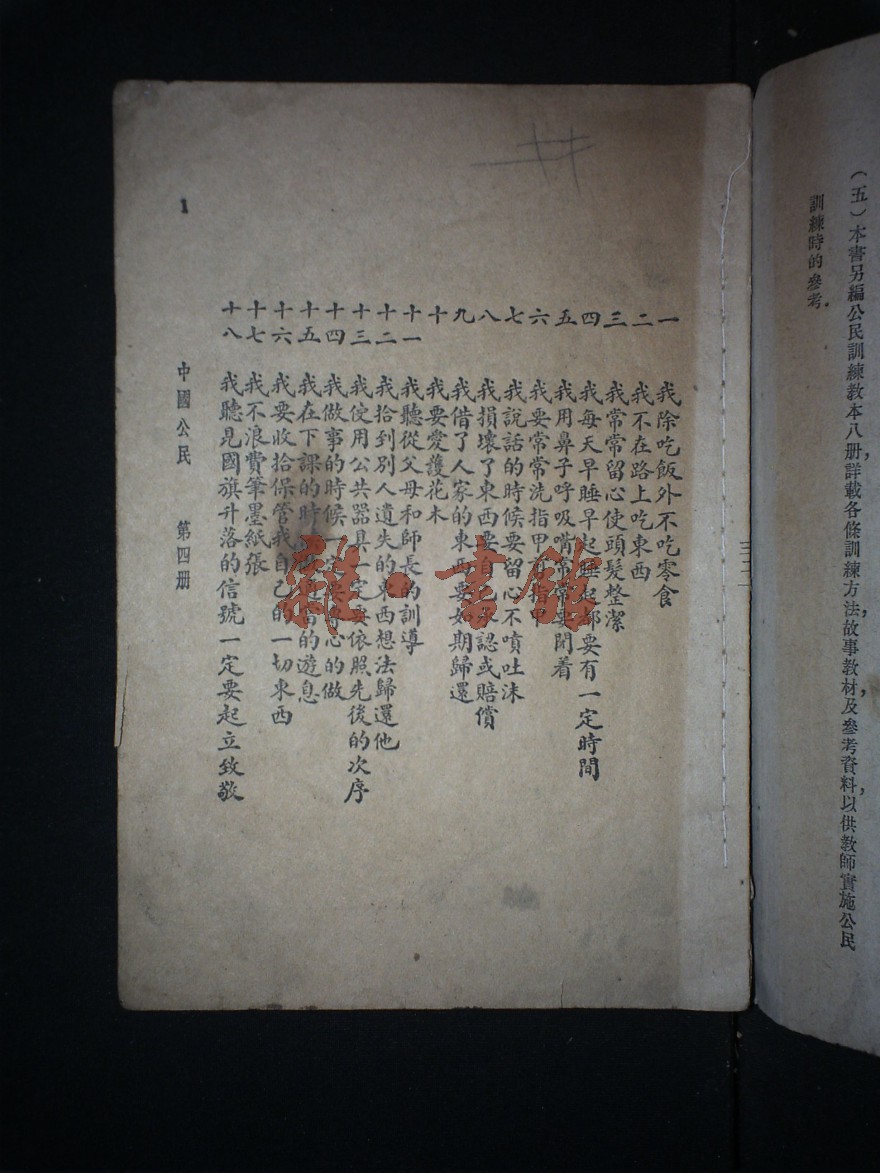 (五)本書另編公民訓練教本八册,詳載各條訓練方法,故事教材,及參考資料,以供教師實施公民
訓練時的參考.
一 我除吃飯外不吃零食
二 我不在路上吃東西
三 我常常留心使頭髮整潔
四 我每天早睡早起睡起都要有一定時間
五 我用鼻子呼吸嘴常常要閉着
六 我要常常洗指甲剪指甲
七 我說話的時候要留心不噴吐沫
八 我損壞了東西要自己承認或賠償
九 我借了人家的東西要如期歸還
十 我要愛護花木
十一 我聽從父母和師長的訓導
十二 我拾到別人遺失的東西想法歸還他
十三 我使用公共器具一定要依照先後的次序
十四 我做事的時候一定要專心的做
十五 我在下課的時 的遊息
十六 我要收拾保管我自己的一切東西
十七 我不浪費筆墨紙張
十八 我聽見國旗升落的信號一定要起立致敬
中國公民 第四册
1
雜·書館